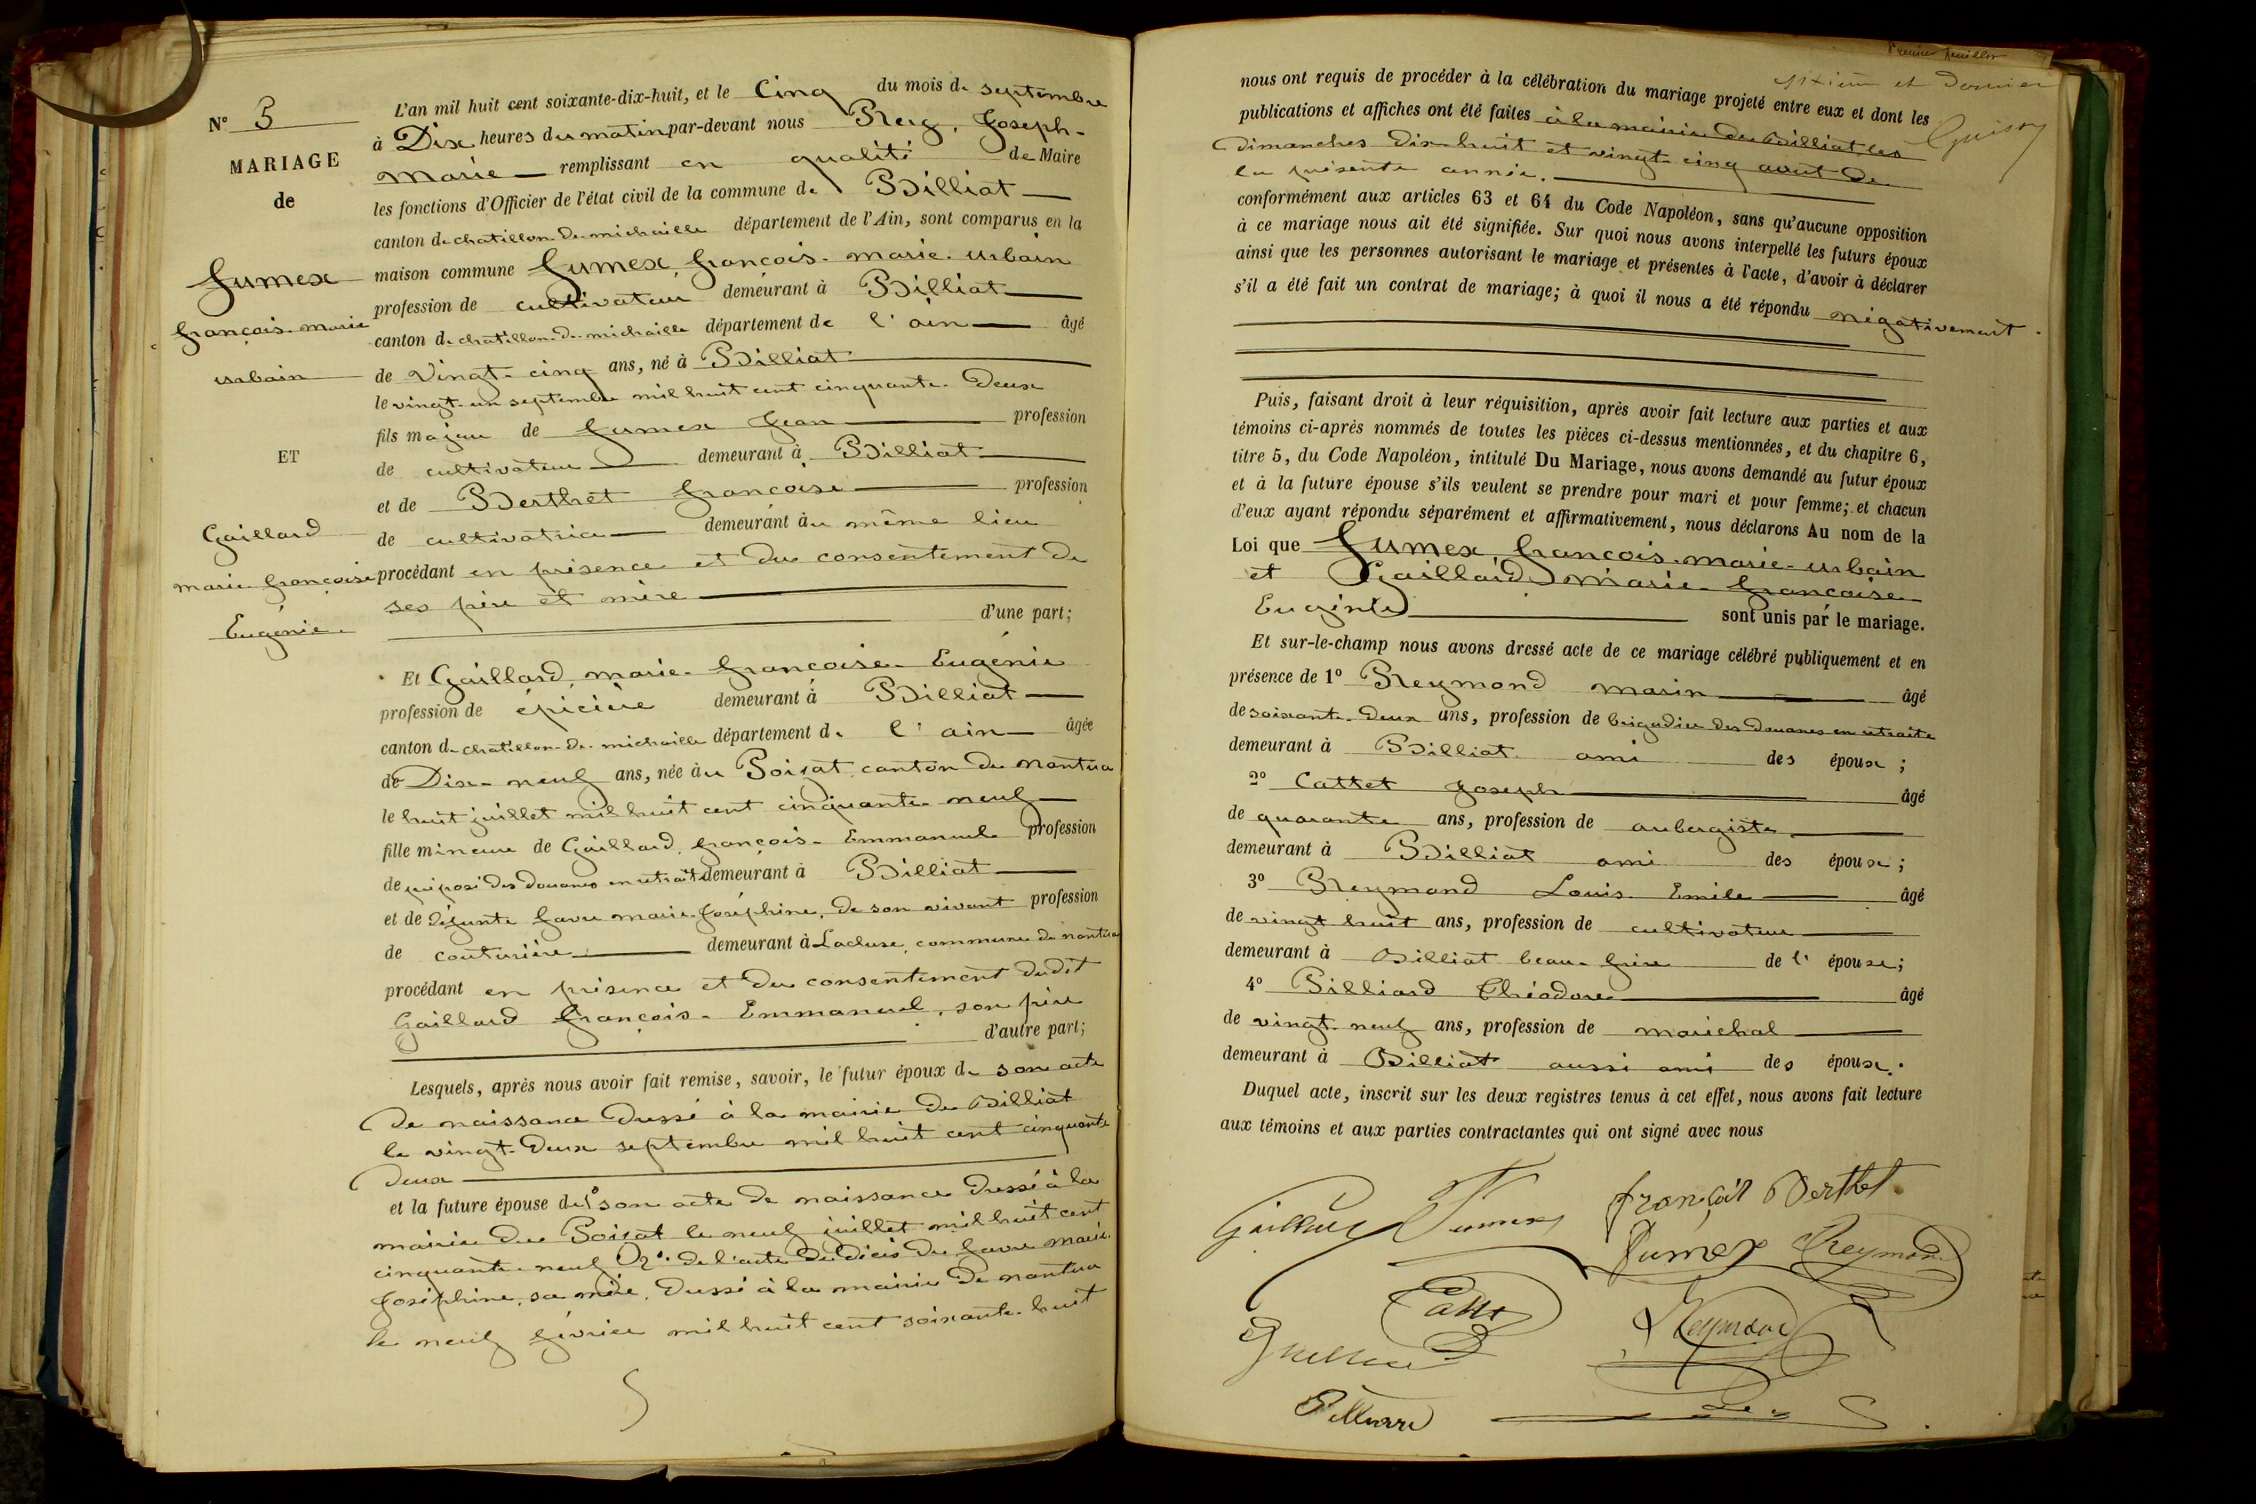 N° 5
MARIAGE
de
fumex
françois-marie
urbain
ET
Gaillard
marie françoise
Eugénie.
L'an mil huit cent soixante-dix-huit, et le Cinq du mois de septembre
à Dix heures du matin par-devant nous Rey, Joseph-
Marie remplissant en qualité de Maire
les fonctions d'Officier de l'état civil de la commune de Billiat
canton de chatillon-de-michaille département de l'Ain, sont comparus en la
maison commune fumex, françois-marie-urbain
profession de cultivateur demeurant à Billiat
canton de chatillon-de-michaille département de l'ain âgé
de Vingt-cinq ans, né à Billiat
le vingt-un septembre mil huit cent cinquante-Deux
fils majeur de fumex Jean profession
de cultivateur demeurant à Billiat
et de Berthet françoise profession
de cultivatrice demeurant au même lieu
procédant en présence et du consentement de
ses père et mère
d'une part;
Et Gaillard, marie-françoise-Eugénie
profession de épicière demeurant à Billiat
canton de chatillon-de-michaille département de l'ain âgée
de Dix-neuf ans, née au Poizat canton de nantua
le huit juillet mil huit cent cinquante-neuf
fille mineure de Gaillard, françois-Emmanuel profession
de préposé des douanes en retraite demeurant à Billiat
et de défunte favre marie-Joséphine, de son vivant profession
de couturière demeurant à Lacluse, commune de nantua
procédant en présence et du consentement dudit
Gaillard françois-Emmanuel, son père
d'autre part;
Lesquels, après nous avoir fait remise, savoir, le futur époux de son acte
de naissance dressé à la mairie de Billiat
le vingt-Deux septembre mil huit cent cinquante
deux
et la future épouse de 1° son acte de naissance dressé à la
mairie du Poizat le neuf juillet mil huit cent
cinquante-neuf 2° de l'acte de décès de favre marie
Joséphine, sa mère, dressé à la mairie de nantua
le neuf février mil huit cent soixante-huit
feuillet
et dernier
nous ont requis de procéder à la célébration du mariage projeté entre eux et dont les
publications et affiches ont été faites à la mairie de Billiat, les
dimanches dix-huit et vingt-cinq août de
la présente année.
conformément aux articles 63 et 64 du Code Napoléon, sans qu'aucune opposition
à ce mariage nous ait été signifiée. Sur quoi nous avons interpellé les futurs époux
ainsi que les personnes autorisant le mariage et présentes à l'acte, d'avoir à déclarer
s'il a été fait un contrat de mariage; à quoi il nous a été répondu négativement.
Puis, faisant droit à leur réquisition, après avoir fait lecture aux parties et aux
témoins ci-après nommés de toutes les pièces ci-dessus mentionnées, et du chapitre 6,
titre 5, du Code Napoléon, intitulé Du Mariage, nous avons demandé au futur époux
et à la future épouse s'ils veulent se prendre pour mari et pour femme; et chacun
d'eux ayant répondu séparément et affirmativement, nous déclarons Au nom de la
Loi que fumex, françois-marie-urbain
et Gaillard marie-françoise
Eugénie sont unis par le mariage.
Et sur-le-champ nous avons dressé acte de ce mariage célébré publiquement et en
présence de 1° Reymond marin âgé
de soixante-deux ans, profession de brigadier des douanes en retraite
demeurant à Billiat ami des époux;
2° Cattet Joseph âgé
de quarante ans, profession de aubergiste
demeurant à Billiat ami des époux;
3° Reymond Louis-Emile âgé
de vingt huit ans, profession de cultivateur
demeurant à Billiat beau-frère de l'épouse;
4° Pilliard Théodore âgé
de vingt-neuf ans, profession de maréchal
demeurant à Billiat aussi ami des époux.
Duquel acte, inscrit sur les deux registres tenus à cet effet, nous avons fait lecture
aux témoins et aux parties contractantes qui ont signé avec nous
Gaillard Fumex françoise Berthet
fumex Reymond
Cattet Reymond